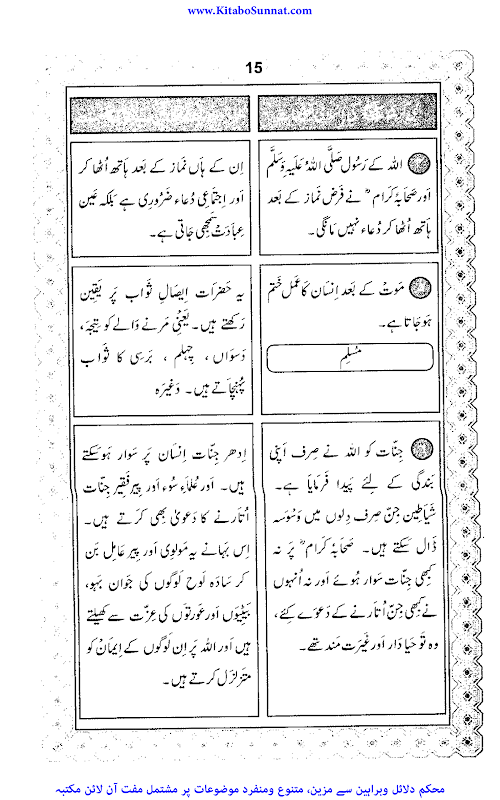 www.KitaboSunnat.com
15
اللہ کے رَسُول صَلَّی اللہُ عَلَیہِ وَسَلَّم
اَور صَحابَۂ کرَام ؓ نے فَرض نماز کے بعد
ہاتھ اُٹھا کر دُعاء نہیں مَانگی۔
اِن کے ہاں نمَاز کے بَعد ہاتھ اُٹھا کر
اَور اِجتماعِی دُعاء ضَرُورِی ہے بَلکہ عَین
عِبادَت سَمجھی جَاتی ہے۔
مَوت کے بَعد اِنسَان کا عَمَل خَتم
ہو جَاتا ہے۔
مُسْلِم
یہ حَضرَات اِیصالِ ثَواب پَر یَقِین
رَکھتے ہیں۔ یَعنی مَرنے وَالے کو تِیجَہ،
دَسوَاں ، چہلم ، بَرسِی کا ثَوابْ
پُہنچَاتے ہیں۔ وَغیرَہ
جِنّات کو اللہ نے صِرف اَپنی
بَندگی کے لِئے پَیدا فَرمَایا ہے۔
شَیَاطِین جِنّ صِرف دِلوں میں وَسوَسَہ
ڈَال سَکتے ہیں۔ صَحابَۂ کرَام ؓ پَر نہ
کبھی جِنّات سَوار ہُوئے اَور نہ اُنہوں
نے کبھی جِنّ اُتارنے کے دَعوے کئے،
وہ تَو حَیا دَار اَور غَیرَت مَند تھے۔
اِدھر جِنّات اِنسَان پَر سَوار ہو سَکتے
ہیں۔ اَور عُلمَاءِ سُوء اَور پِیر فَقِیر جِنّات
اُتارنے کا دَعویٰ بھی کرَتے ہیں۔
اِس بہانے یہ مَولوِی اَور پِیر عَامِل بَن
کر سَادَہ لَوح لَوگوں کی جَوان بَہو،
بیٹیَوں اَور عَورَتوں کی عِزّت سے کھیلتے
ہیں اَور اللہ پَر اِن لَوگوں کے اِیمَان کو
مُتزلزَل کرَتے ہیں۔
محکم دلائل وبراہین سے مزین، متنوع ومنفرد موضوعات پر مشتمل مفت آن لائن مکتبہ